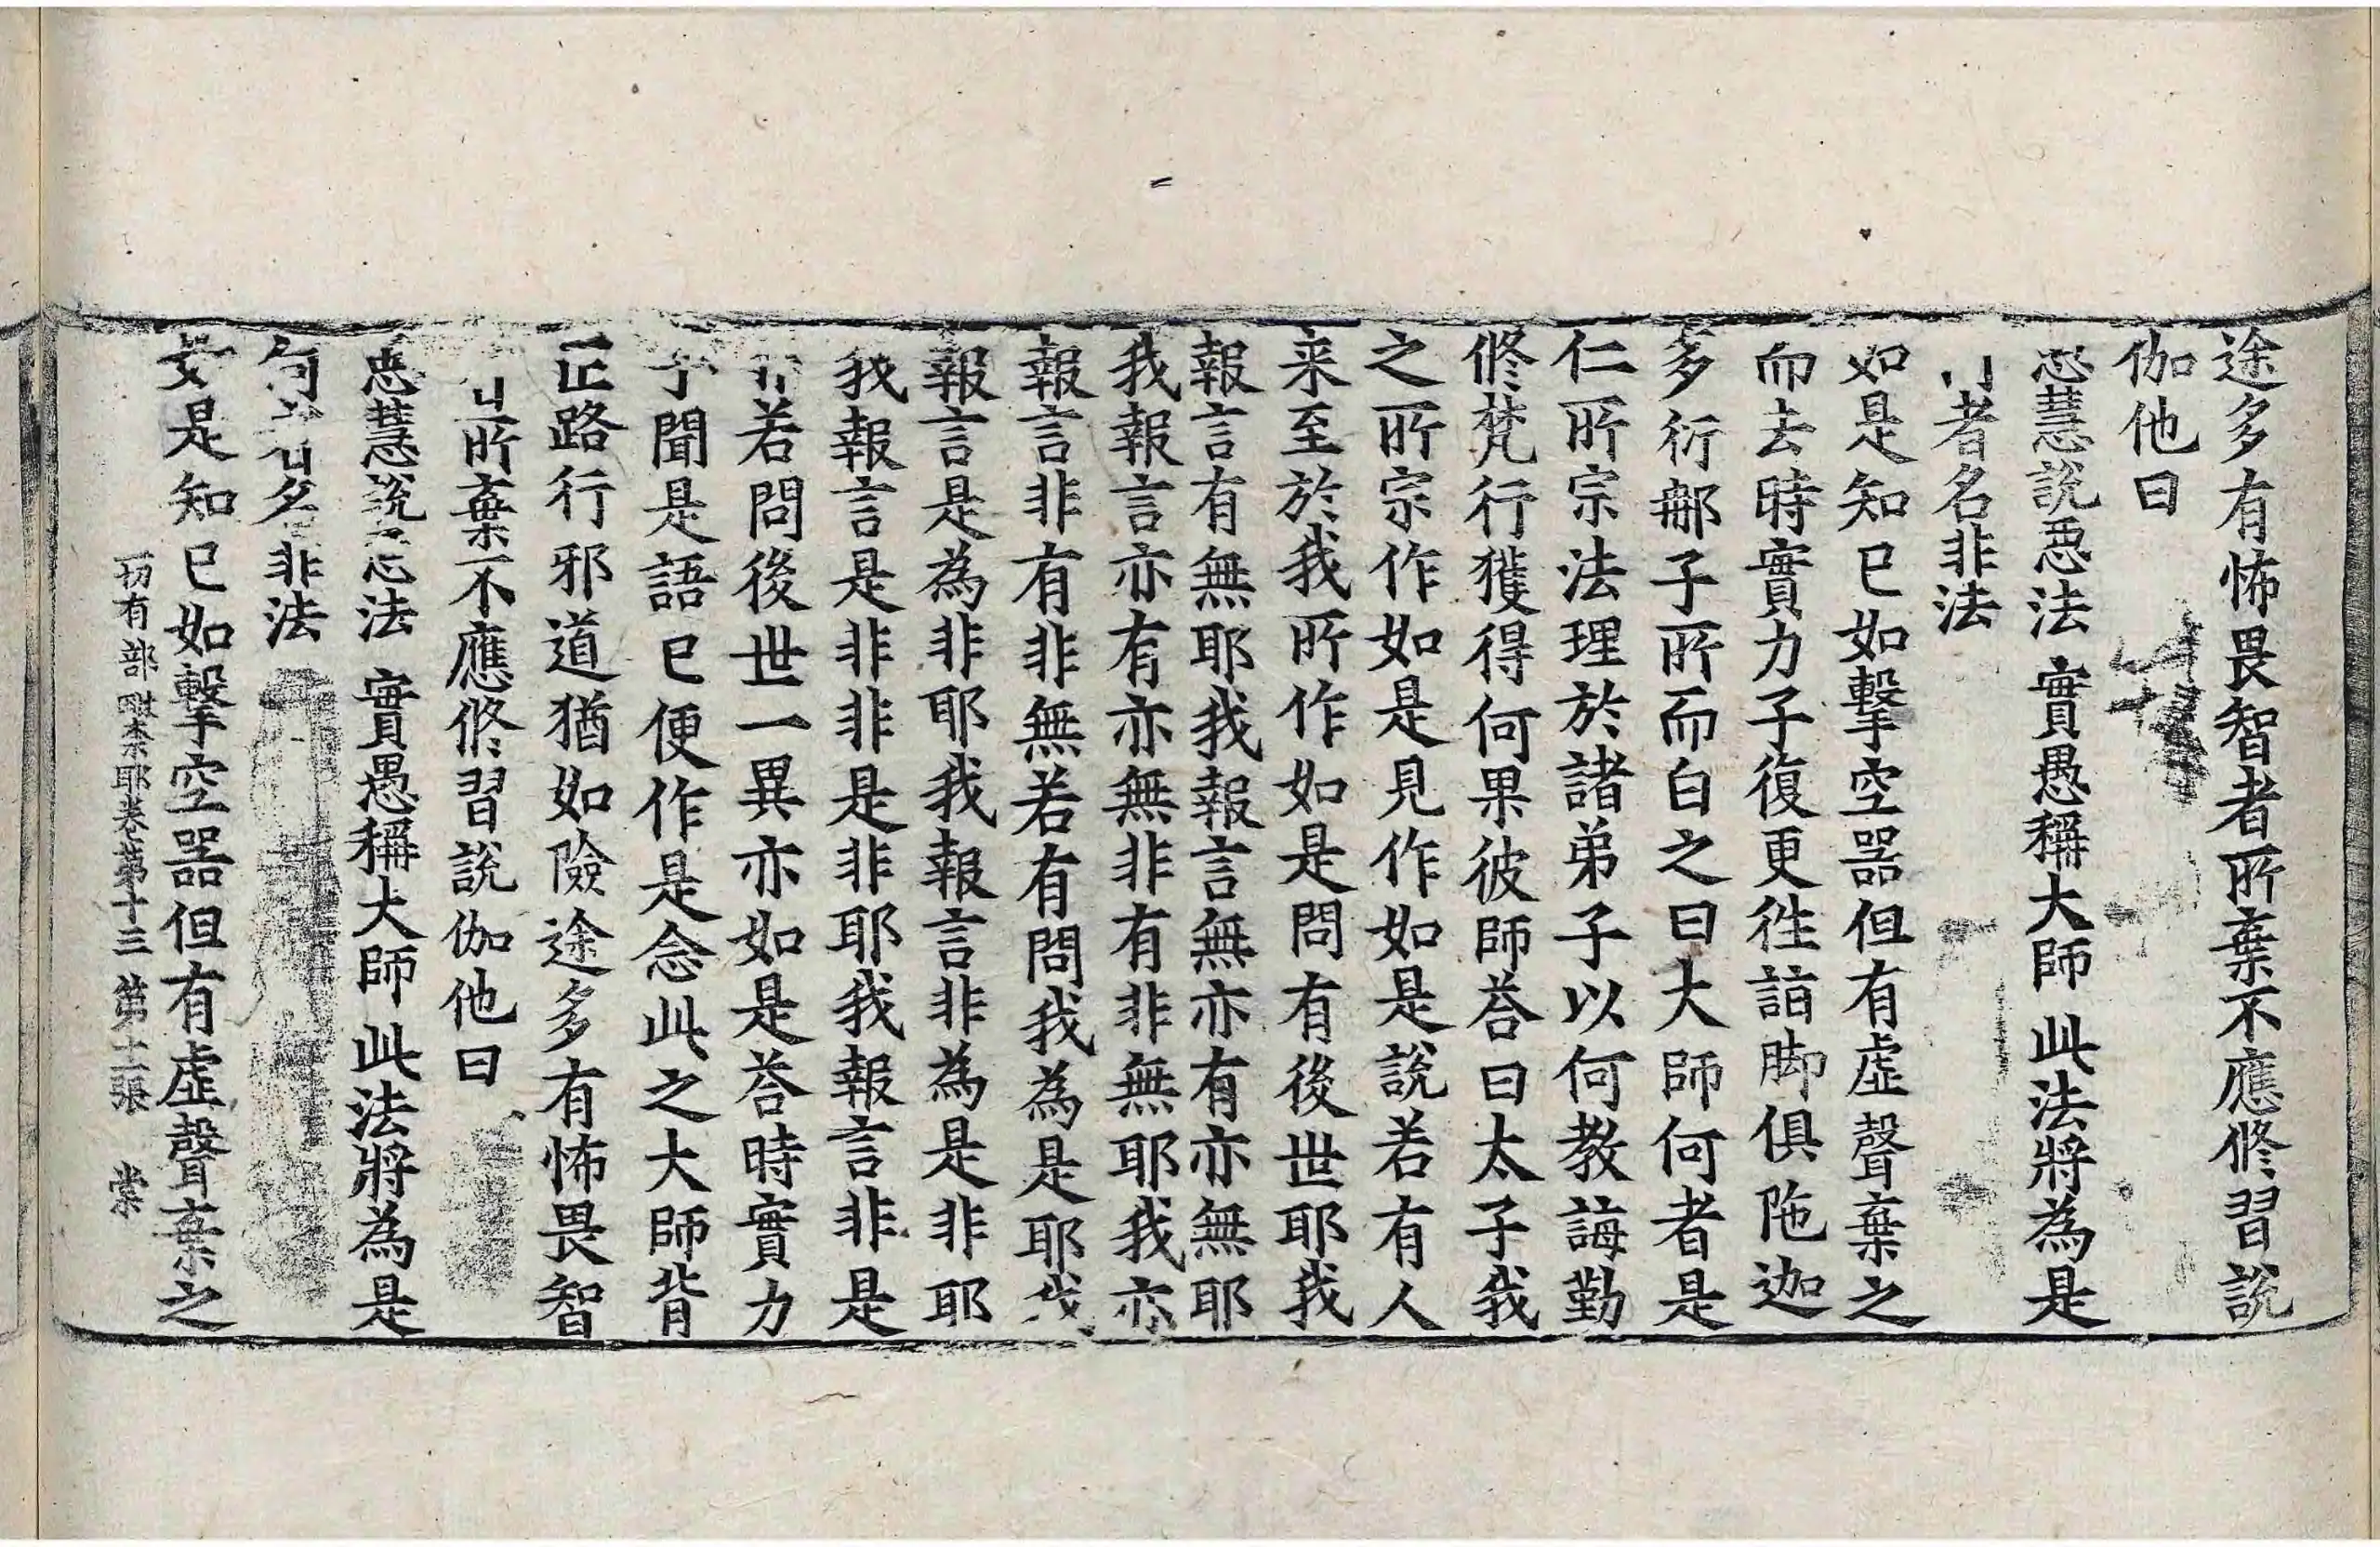 途多有怖畏智者所棄不應修習說
伽他曰
惡慧說惡法 實愚稱大師 此法將為是
何者名非法
如是知已如擊空器但有虛聲棄之
而去時實力子復更往詣脚俱陁迦
多衍那子所而白之曰大師何者是
仁所宗法理於諸弟子以何教誨勤
修梵行獲得何果彼師荅曰太子我
之所宗作如是見作如是說若有人
来至於我所作如是問有後世耶我
報言有無耶我報言無亦有亦無耶
我報言亦有亦無非有非無耶我亦
報言非有非無若有問我為是耶我
報言是為非耶我報言非為是非耶
我報言是非非是非耶我報言非是
非若問後世一異亦如是荅時實力
子聞是語已便作是念此之大師背
正路行邪道猶如險途多有怖畏智
者所棄不應修習說伽他曰
惡慧說惡法 實愚稱大師 此法將為是
何者名非法
如是知已如擊空器但有虛聲棄之
一切有部毗柰耶卷第十三 第十二張 棠